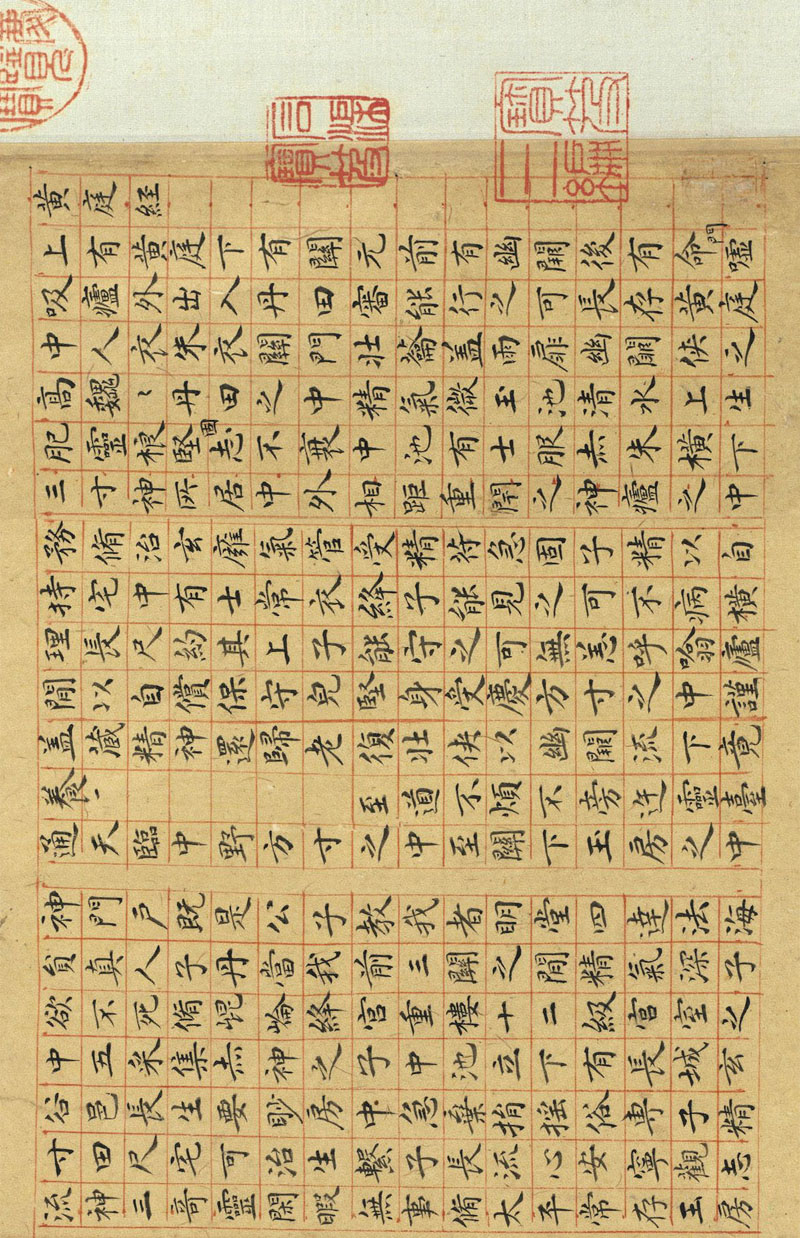 黄庭経
上有黄庭下有關元前有幽闕後有命門噓
吸廬外出入丹田審能行之可長存黄庭
中人衣朱衣關門壯蘥盖兩扉幽闕俠之
高魏〻丹田之中精氣微玉池清水上生
肥靈根堅固志不衰中池有士服赤朱橫下
三寸神所居中外相距重閉之神廬之中
務脩治玄廱氣管受精符急固子精以自
持宅中有士常衣絳子能見之可不病橫
理長尺約其上子能守之可無恙呼噏廬
間以自償保守皃堅身受慶方寸之中謹
盖藏精神還歸老復壯俠以幽闕流下竟
養〻 至道不煩不旁迕靈臺
通天臨中野方寸之中至關下玉房之中
神門戶既是公子教我者明堂四達法海
貟真人子丹當我前三關之間精氣深子
欲不死脩崐崘絳宮重樓十二級宮室之
中五采集赤神之子中池立下有長城玄
谷邑長生要眇房中急棄捐揺俗専子精
寸田尺宅可治生繫子長流心安寧觀志
流神三奇靈閑暇無事脩太平常存玉房